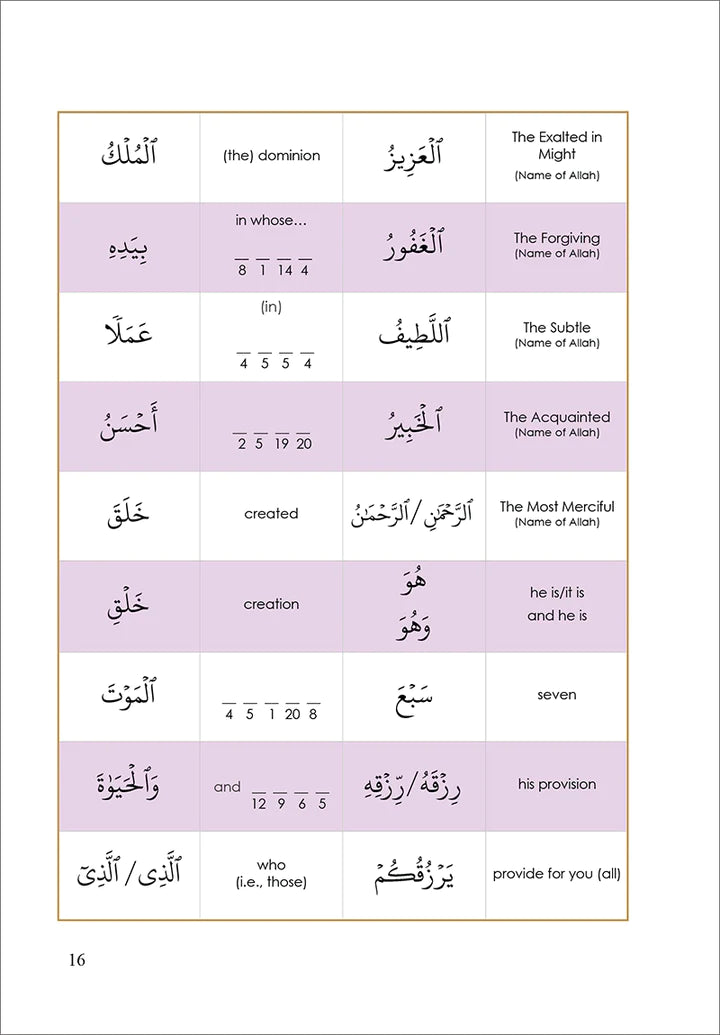 ٱلۡمُلۡكُ
(the) dominion
ٱلۡعَزِيزُ
The Exalted in
Might
(Name of Allah)
بِيَدِهِ
in whose…
__ __ __ __
8 1 14 4
ٱلۡغَفُورُ
The Forgiving
(Name of Allah)
عَمَلٗا
(in)
__ __ __ __
4 5 5 4
ٱللَّطِيفُ
The Subtle
(Name of Allah)
أَحۡسَنُ
__ __ __ __
2 5 19 20
ٱلۡخَبِيرُ
The Acquainted
(Name of Allah)
خَلَقَ
created
ٱلرَّحۡمَٰنِ/ٱلرَّحۡمَٰنُ
The Most Merciful
(Name of Allah)
خَلۡقِ
creation
هُوَ
وَهُوَ
he is/it is
and he is
ٱلۡمَوۡتَ
__ __ __ __ __
4 5 1 20 8
سَبۡعَ
seven
وَٱلۡحَيَوٰةَ
and __ __ __ __
12 9 6 5
رِزۡقَهُۥ/رِّزۡقِهِ
his provision
ٱلَّذِى/ٱلَّذِىٓ
who
(i.e., those)
يَرۡزُقُكُمۡ
provide for you (all)
16